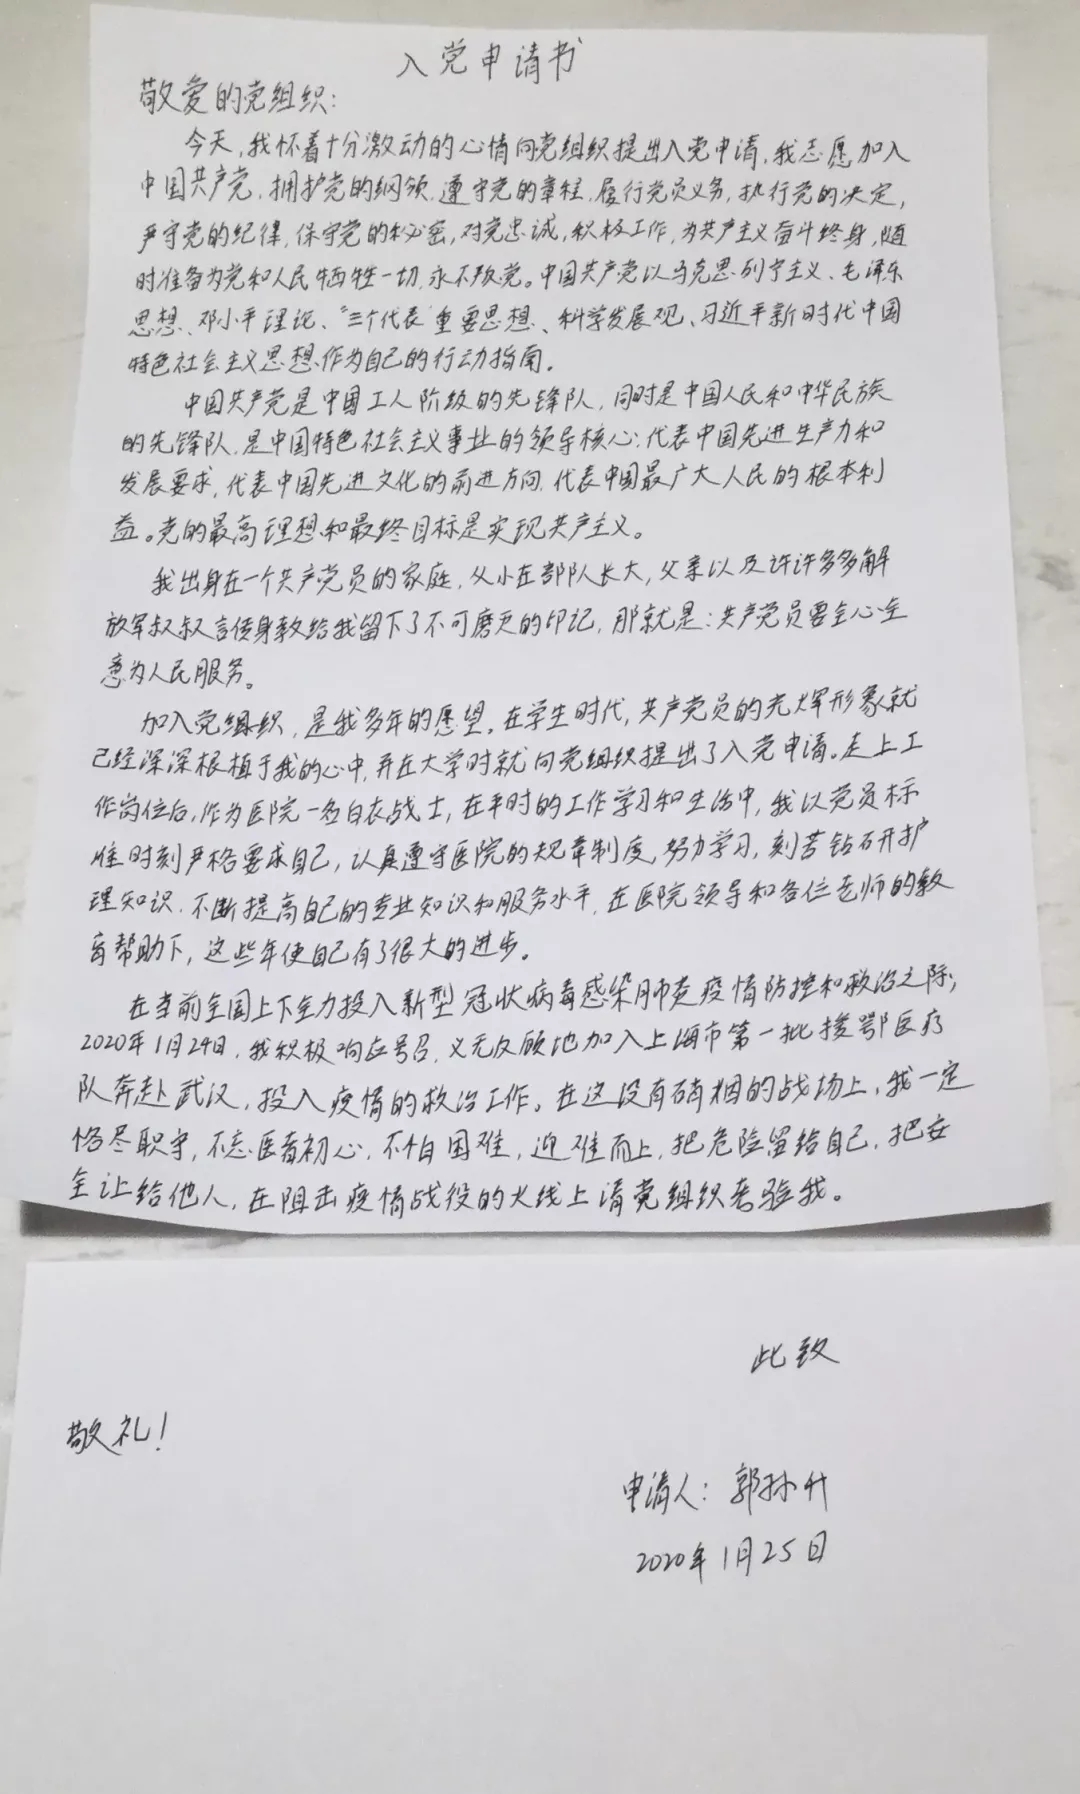 入党申请书
敬爱的党组织：
今天，我怀着十分激动的心情向党组织提出入党申请，我志愿加入
中国共产党，拥护党的纲领，遵守党的章程，履行党员义务，执行党的决定，
严守党的纪律，保守党的秘密，对党忠诚，积极工作，为共产主义奋斗终身，随
时准备为党和人民牺牲一切，永不叛党。中国共产党以马克思列宁主义、毛泽东
思想、邓小平理论、“三个代表”重要思想、科学发展观、习近平新时代中国
特色社会主义思想作为自己的行动指南。
中国共产党是中国工人阶级的先锋队，同时是中国人民和中华民族
的先锋队，是中国特色社会主义事业的领导核心，代表中国先进生产力和
发展要求，代表中国先进文化的前进方向，代表中国最广大人民的根本利
益。党的最高理想和最终目标是实现共产主义。
我出身在一个共产党员的家庭，从小在部队长大，父亲以及许许多多解
放军叔叔言传身教给我留下了不可磨灭的印记，那就是：共产党员要全心全
意为人民服务。
加入党组织，是我多年的愿望。在学生时代，共产党员的光辉形象就
已经深深根植于我的心中，并在大学时就向党组织提出了入党申请。走上工
作岗位后，作为医院一名白衣战士，在平时的工作学习和生活中，我以党员标
准时刻严格要求自己，认真遵守医院的规章制度，努力学习，刻苦钻研护
理知识，不断提高自己的专业知识和服务水平，在医院领导和各位老师的教
育帮助下，这些年使自己有了很大的进步。
在当前全国上下全力投入新型冠状病毒感染肺炎疫情防控和救治之际，
2020年1月24日，我积极响应号召，义无反顾地加入上海市第一批援鄂医疗
队奔赴武汉，投入疫情的救治工作。在这没有硝烟的战场上，我一定
恪尽职守，不忘医者初心，不怕困难，迎难而上，把危险留给自己，把安
全让给他人，在阻击疫情战役的火线上请党组织考验我。
此致
敬礼！
申请人：郭孙升
2020年1月25日